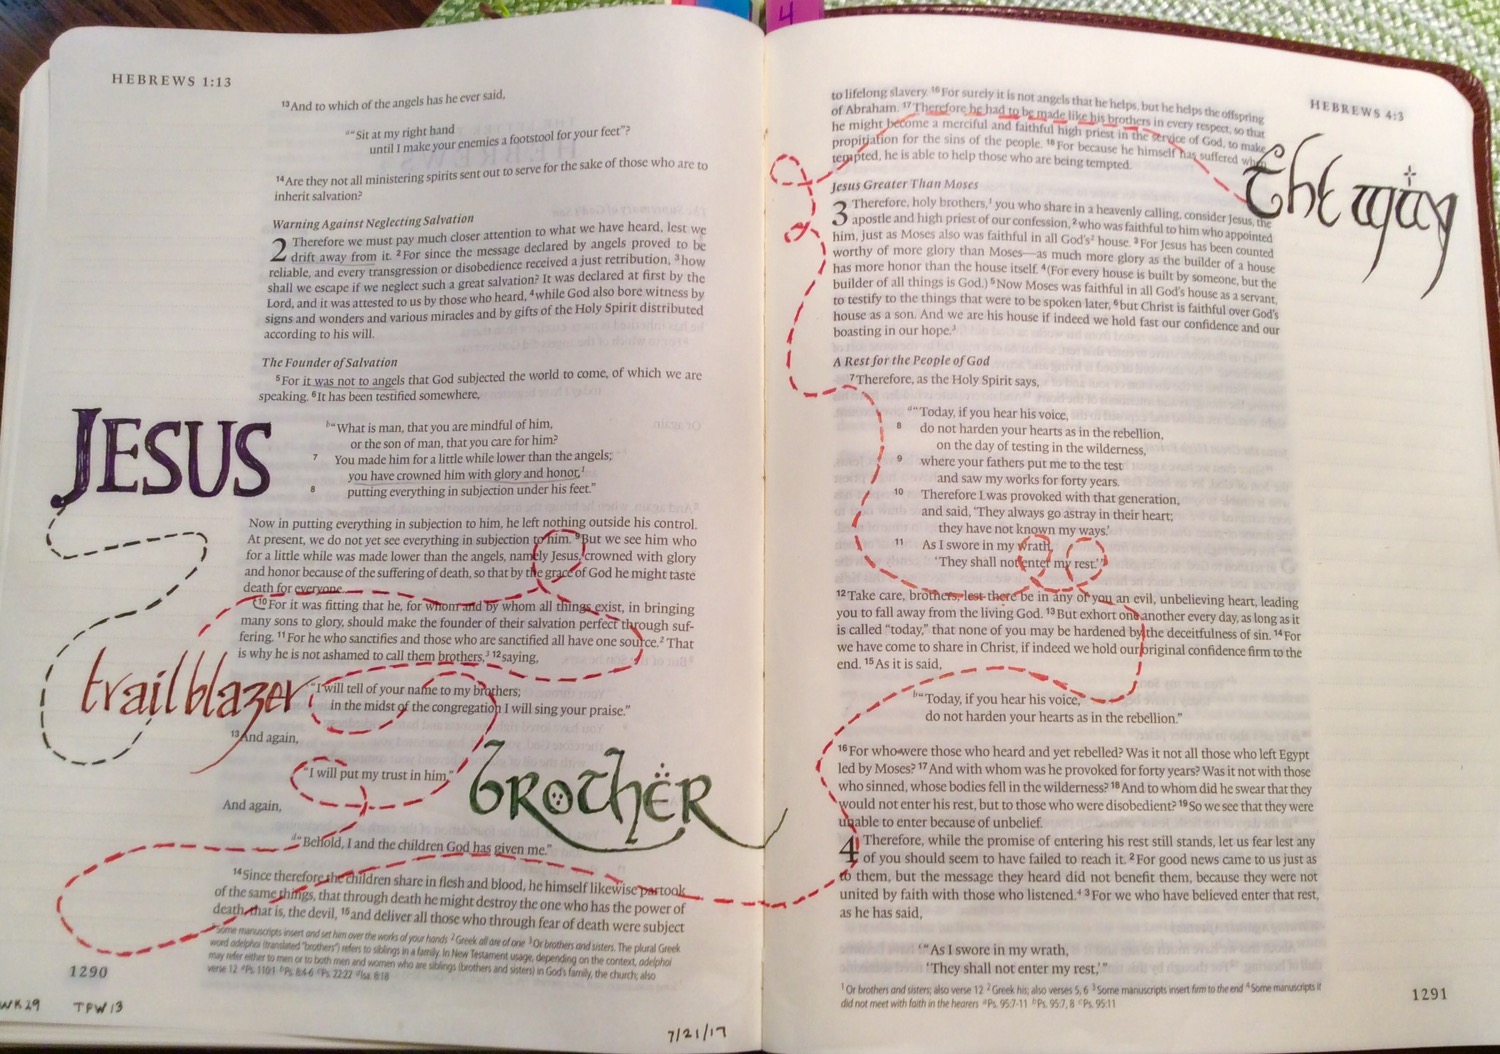 4
HEBREWS 1:13
13And to which of the angels has he ever said,
a“Sit at my right hand
until I make your enemies a footstool for your feet”?
14Are they not all ministering spirits sent out to serve for the sake of those who are to
inherit salvation?
Warning Against Neglecting Salvation
2 Therefore we must pay much closer attention to what we have heard, lest we
drift away from it. 2For since the message declared by angels proved to be
reliable, and every transgression or disobedience received a just retribution, 3how
shall we escape if we neglect such a great salvation? It was declared at first by the
Lord, and it was attested to us by those who heard, 4while God also bore witness by
signs and wonders and various miracles and by gifts of the Holy Spirit distributed
according to his will.
The Founder of Salvation
5For it was not to angels that God subjected the world to come, of which we are
speaking. 6It has been testified somewhere,
b“What is man, that you are mindful of him,
or the son of man, that you care for him?
7 You made him for a little while lower than the angels;
you have crowned him with glory and honor,1
8 putting everything in subjection under his feet.”
JESUS
Now in putting everything in subjection to him, he left nothing outside his control.
At present, we do not yet see everything in subjection to him. 9But we see him who
for a little while was made lower than the angels, namely Jesus, crowned with glory
and honor because of the suffering of death, so that by the grace of God he might taste
death for everyone.
10For it was fitting that he, for whom and by whom all things exist, in bringing
many sons to glory, should make the founder of their salvation perfect through suf-
fering. 11For he who sanctifies and those who are sanctified all have one source.2 That
is why he is not ashamed to call them brothers,3 12saying,
trailblazer
“I will tell of your name to my brothers;
in the midst of the congregation I will sing your praise.”
13And again,
“I will put my trust in him.”
brother
And again,
d“Behold, I and the children God has given me.”
14Since therefore the children share in flesh and blood, he himself likewise partook
of the same things, that through death he might destroy the one who has the power of
death, that is, the devil, 15and deliver all those who through fear of death were subject
1Some manuscripts insert and set him over the works of your hands 2Greek all are of one 3Or brothers and sisters. The plural Greek
word adelphoi (translated “brothers”) refers to siblings in a family. In New Testament usage, depending on the context, adelphoi
may refer either to men or to both men and women who are siblings (brothers and sisters) in God's family, the church; also
verse 12 aPs. 110:1 bPs. 8:4-6 cPs. 22:22 dIsa. 8:18
1290
WK29 TPW13
7/21/17
HEBREWS 4:3
to lifelong slavery. 16For surely it is not angels that he helps, but he helps the offspring
of Abraham. 17Therefore he had to be made like his brothers in every respect, so that
he might become a merciful and faithful high priest in the service of God, to make
propitiation for the sins of the people. 18For because he himself has suffered when
tempted, he is able to help those who are being tempted.
the way
Jesus Greater Than Moses
3 Therefore, holy brothers,1 you who share in a heavenly calling, consider Jesus, the
apostle and high priest of our confession, 2who was faithful to him who appointed
him, just as Moses also was faithful in all God's2 house. 3For Jesus has been counted
worthy of more glory than Moses—as much more glory as the builder of a house
has more honor than the house itself. 4(For every house is built by someone, but the
builder of all things is God.) 5Now Moses was faithful in all God's house as a servant,
to testify to the things that were to be spoken later, 6but Christ is faithful over God's
house as a son. And we are his house if indeed we hold fast our confidence and our
boasting in our hope.3
A Rest for the People of God
7Therefore, as the Holy Spirit says,
a“Today, if you hear his voice,
8 do not harden your hearts as in the rebellion,
on the day of testing in the wilderness,
9 where your fathers put me to the test
and saw my works for forty years.
10 Therefore I was provoked with that generation,
and said, ‘They always go astray in their heart;
they have not known my ways.’
11 As I swore in my wrath,
‘They shall not enter my rest.’”
12Take care, brothers, lest there be in any of you an evil, unbelieving heart, leading
you to fall away from the living God. 13But exhort one another every day, as long as it
is called “today,” that none of you may be hardened by the deceitfulness of sin. 14For
we have come to share in Christ, if indeed we hold our original confidence firm to the
end. 15As it is said,
b“Today, if you hear his voice,
do not harden your hearts as in the rebellion.”
16For who were those who heard and yet rebelled? Was it not all those who left Egypt
led by Moses? 17And with whom was he provoked for forty years? Was it not with those
who sinned, whose bodies fell in the wilderness? 18And to whom did he swear that they
would not enter his rest, but to those who were disobedient? 19So we see that they were
unable to enter because of unbelief.
4 Therefore, while the promise of entering his rest still stands, let us fear lest any
of you should seem to have failed to reach it. 2For good news came to us just as
to them, but the message they heard did not benefit them, because they were not
united by faith with those who listened.4 3For we who have believed enter that rest,
as he has said,
c“As I swore in my wrath,
‘They shall not enter my rest,’”
1Or brothers and sisters; also verse 12 2Greek his; also verses 5, 6 3Some manuscripts insert firm to the end 4Some manuscripts it
did not meet with faith in the hearers aPs. 95:7-11 bPs. 95:7, 8 cPs. 95:11
1291